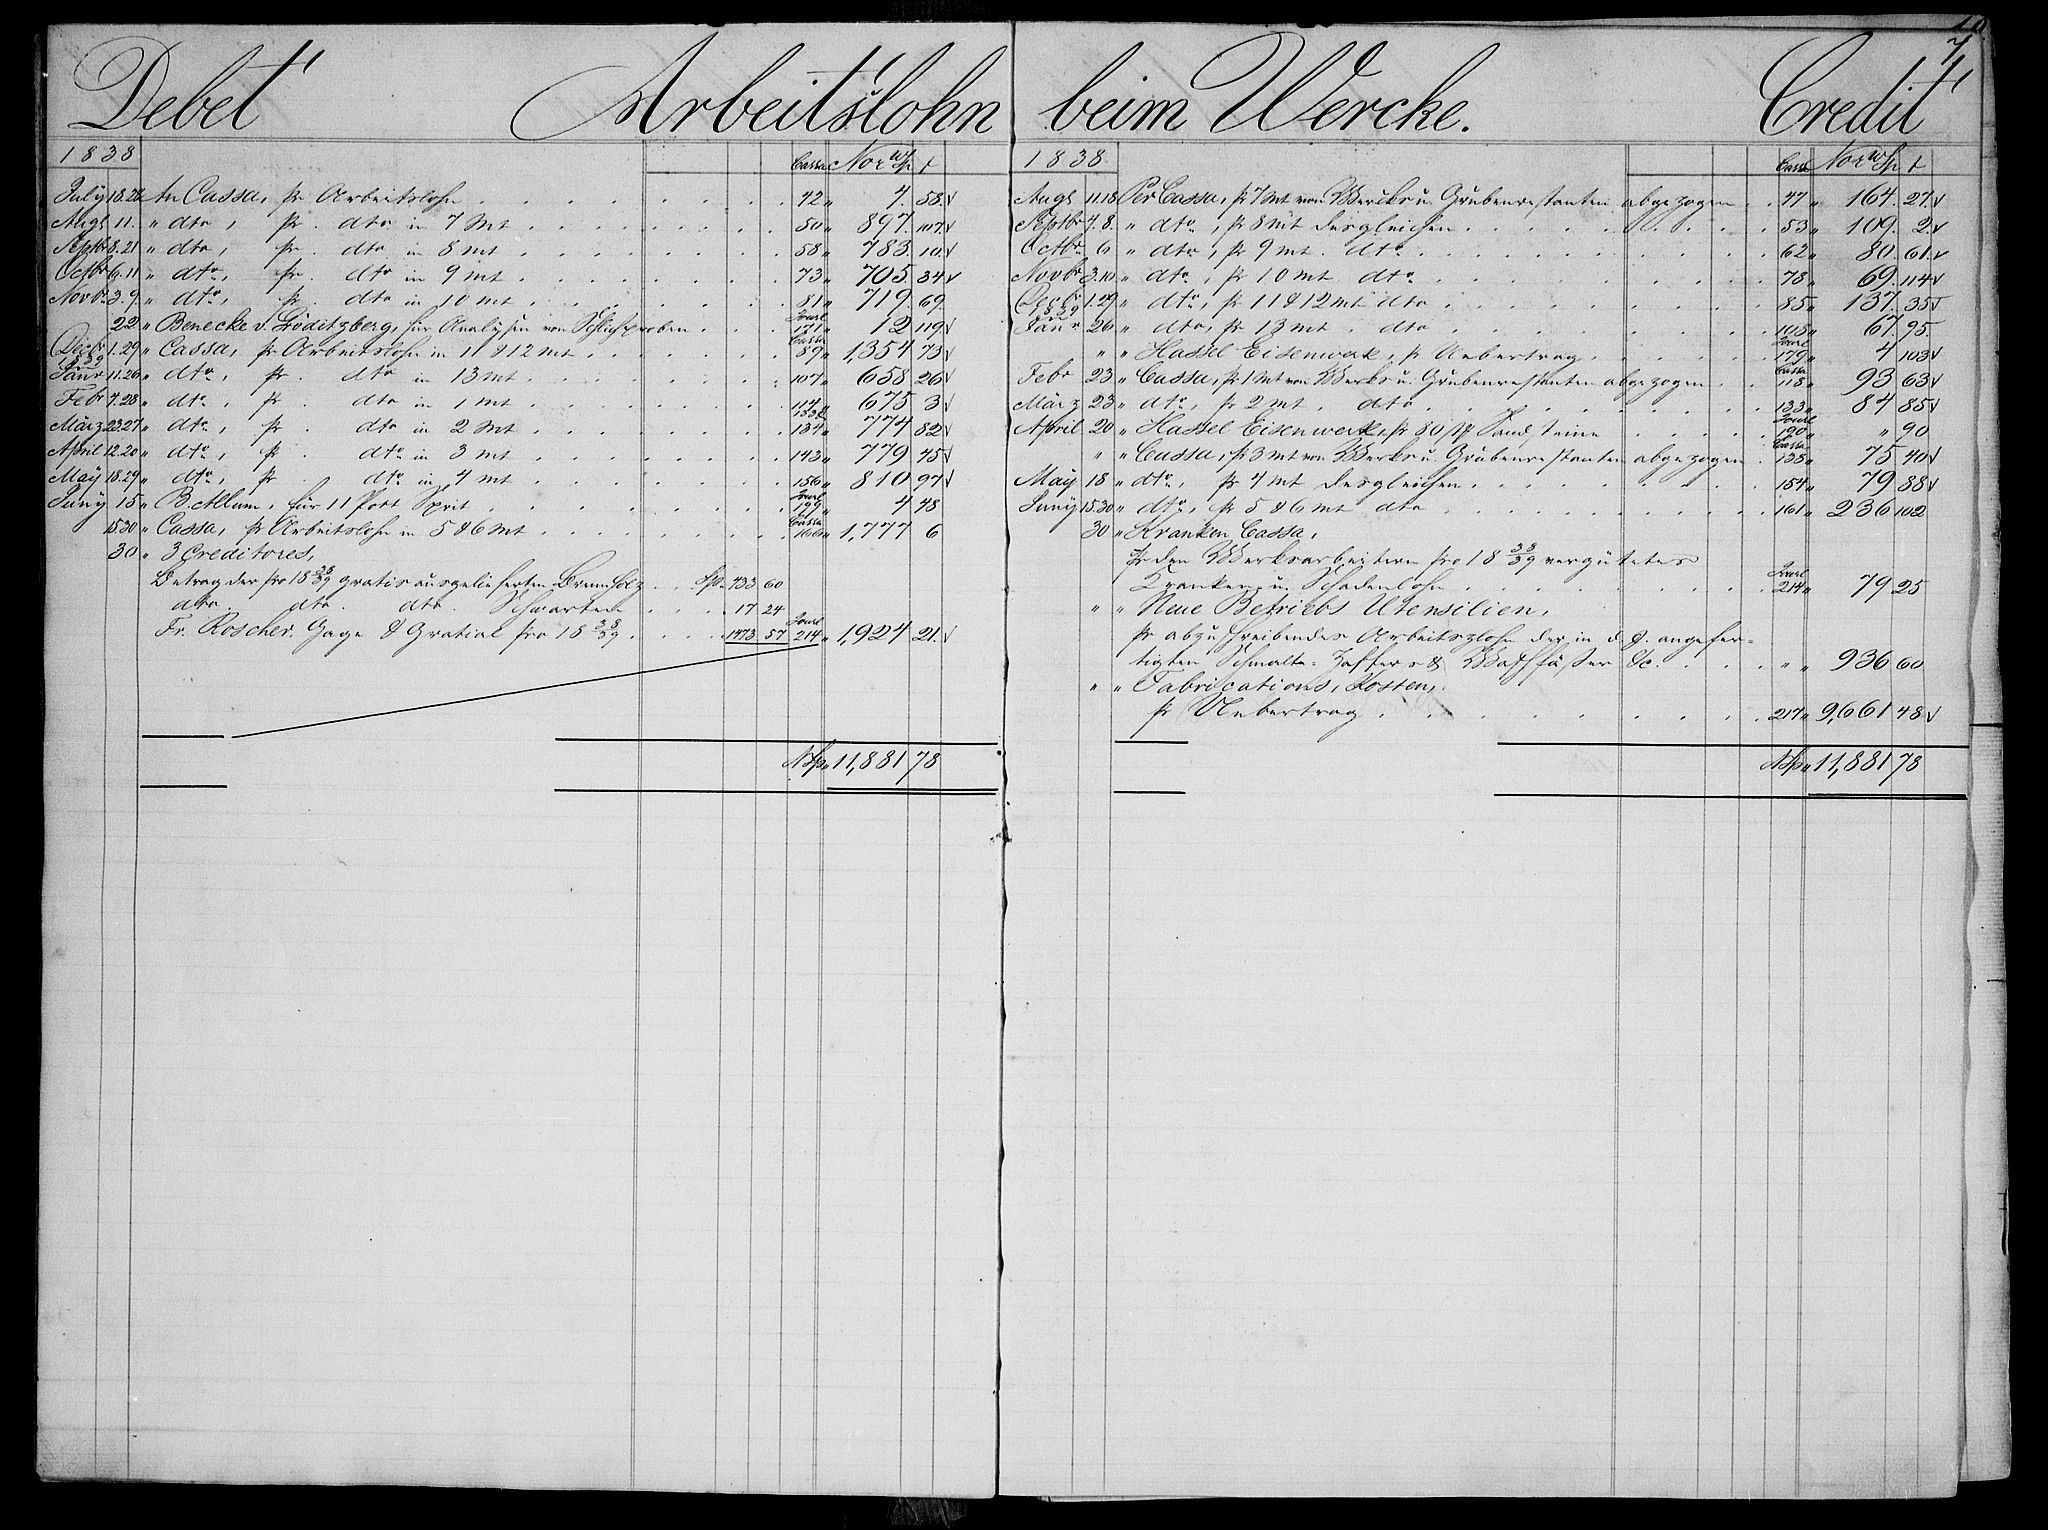 Debet Arbeitslohn beim Wercke. Credit
1838 Cassa Nor
July 18.28 An Cassa, pr Arbeitslohn 42 " 4. 58
Augt 11. " dto, pr. dto in 7 Mt 50 " 897. 107
Septbr 8.21 " dto, pr. dto in 8 mt 58 " 783. 10
Octbr 6.11 " dto, pr. dto in 9 mt 73 " 705. 34
Novbr 3.9. " dto, pr. dto in 10 mt 81 " 719. 69.
22 " Benecke v. Gröditzberg, für Analysen von Schlichproben Jourl 171 " 12 119
Decbr 1.29 " Cassa, pr Arbeitslohn in 11 & 12 mt Cassa 89 " 1,354 73
1839
Janr 11.26 " dto, pr. dto in 13 mt 107 " 658 26
Febr 4.28 " dto, pr. dto in 1 mt 114 " 675 3
März 23.27 " dto, pr. dto in 2 Mt 134 " 774 82
April 12.20 " dto, pr. dto in 3 mt 143 " 779 45
May 18.29 " dto, pr. dto in 4 mt 156 " 810 97
Juny 15 " B. Allum, für 11 Pott Sprit Jourl 199 " 4 48
15.30 " Cassa, pr Arbeitslohn in 5 & 6 mt Cassa 166 " 1,777 6
30 " 3 Creditores,
Betrag der pro 18 38/39 gratis ausgelieferten Brennholz Sp. 433 60
dto. dto. dto. Schwarten 17 24
Fr. Roscher. Gage & Gratial pro 18 38/39. 1473 57 Jourl 214 " 1,924 21.
NSp " 11,881 78
1838 Cassa Nor
Augt 11.18 Per Cassa, pr 7 Mt von Wercks u. Grubenrestanten abgezogen 47 " 164. 27
Septbr 4.8. " dto, pr 8 mt desgleichen 53 " 109. 2
Octbr 6 " dto, pr 9 mt. dto 62 " 80. 61
Novbr 3.10. " dto, pr 10 mt dto 78 " 69. 114
Decbr 1.29 " dto, pr 11 & 12 mt dto 85 " 137. 35
1839
Janr 26 " dto, pr 13 mt. dto 105 " 67 95.
" " Hassel Eisenwerk, pr Uebertrag Jourl 179 " 4 103
Febr 23 " Cassa, pr 1 Mt von Werks u. Grubenrestanten abgezogen Cassa 118 " 93 63
März 23 " dto, pr 2 mt. dto 133 " 84 85
April 20 " Hassel Eisenwerk, pr 80 Sandsteine Jourl 190 " " 90
" " Cassa, pr 3 Mt von Werks u. Grubenrestanten abgezogen Cassa 138 " 75 40
May 18 " dto, pr 4 mt desgleichen 154 " 79 88
Juny 15.30 " dto, pr 5 & 6 mt dto 161 " 236 102
30 " Kranken Cassa,
pr den Werksarbeitern pro 18 38/39 vergütetes
Kranken u. Schadenlohn Jourl 214 " 79 25
" " Neue Betriebs Utensilien,
pr abzuschreibendes Arbeitslohn der in d. J. angefer-
tigten Schmalte- Zaffer & Waschfässer &c. " " 936 60
" " Fabrications, Kosten,
pr Uebertrag 217 " 9,661 48
NSp " 11,881 78